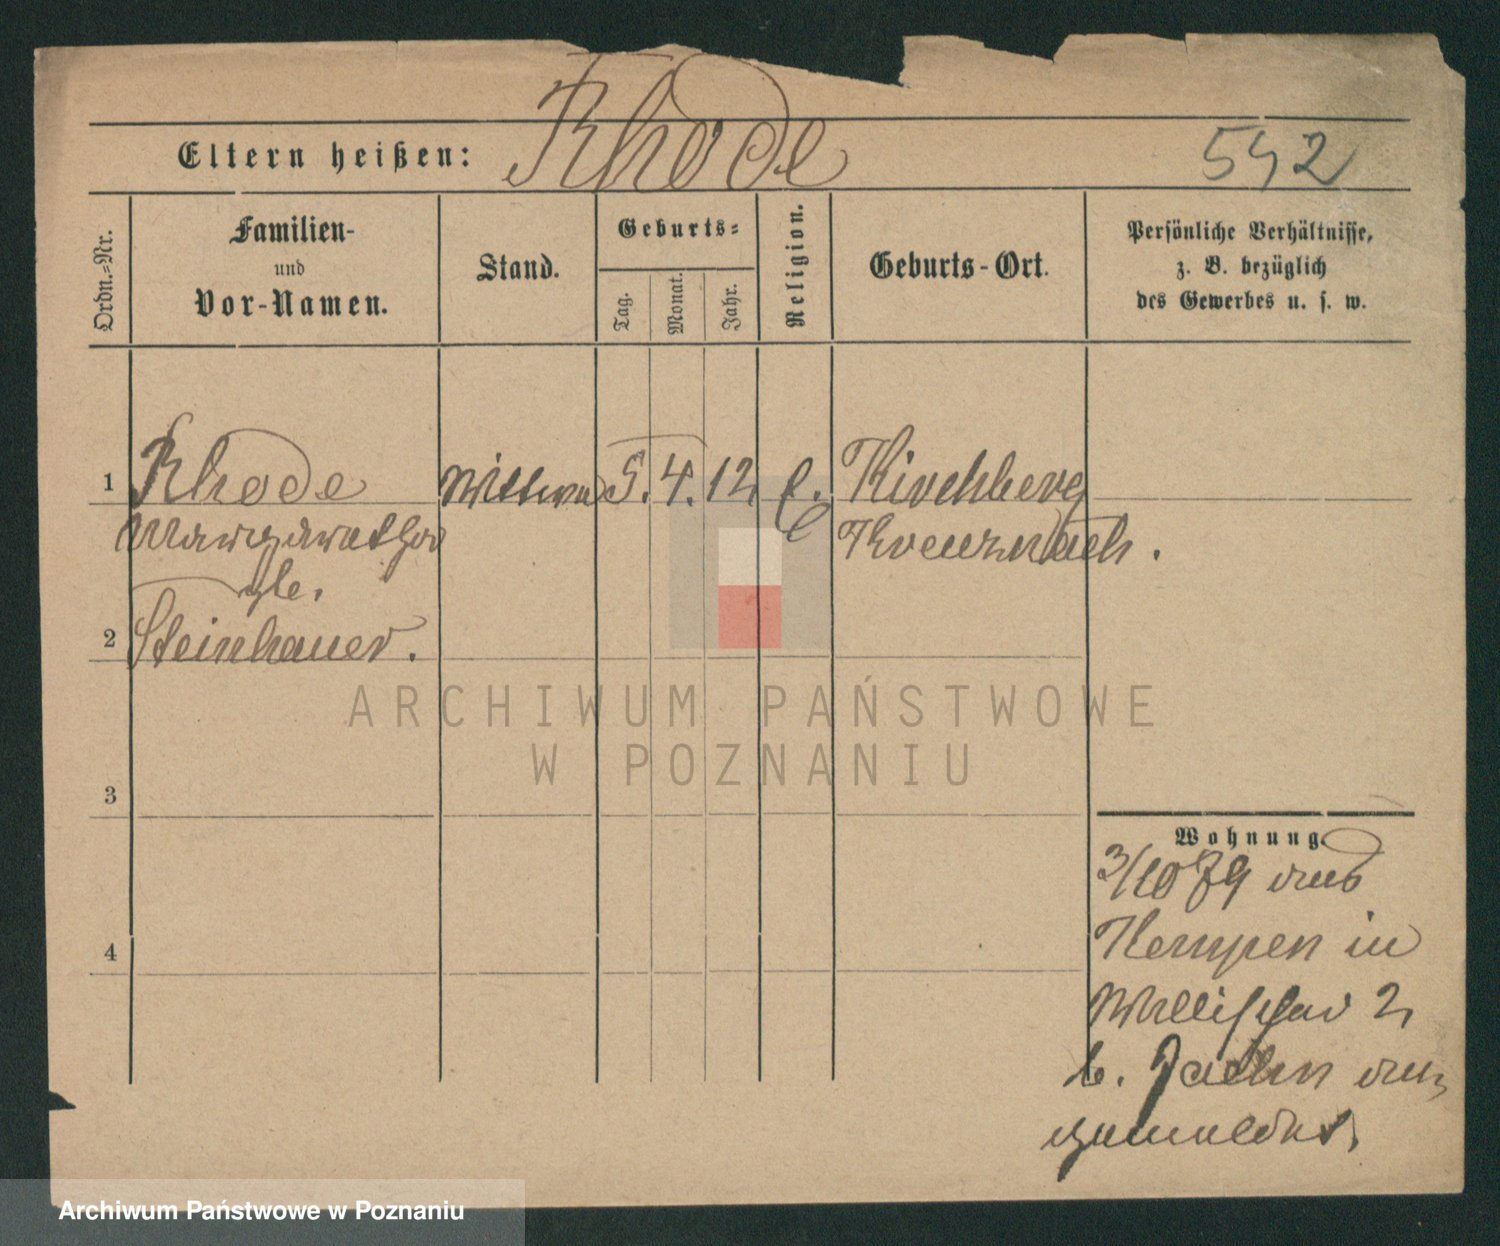 Rhode
Eltern heißen:
542
Ordn.-Nr.
Familien-
und
Vor-Namen.
Stand.
Geburts-
Tag.
Monat.
Jahr.
Religion.
Geburts-Ort.
Persönliche Verhältnisse,
z. B. bezüglich
des Gewerbes u. s. w.
1
Rhode
Wittwe
5.
4.
12
e.
Kirchberg
Margarethe
Kreuznach.
gb.
2
Steinhauer.
ARCHIWUM PAŃSTWOWE
W POZNANIU
3
Wohnung
3/10 79 aus
4
Kempen in
Wallischei 2
b. Jaehn an-
gemeldet.
Archiwum Państwowe w Poznaniu